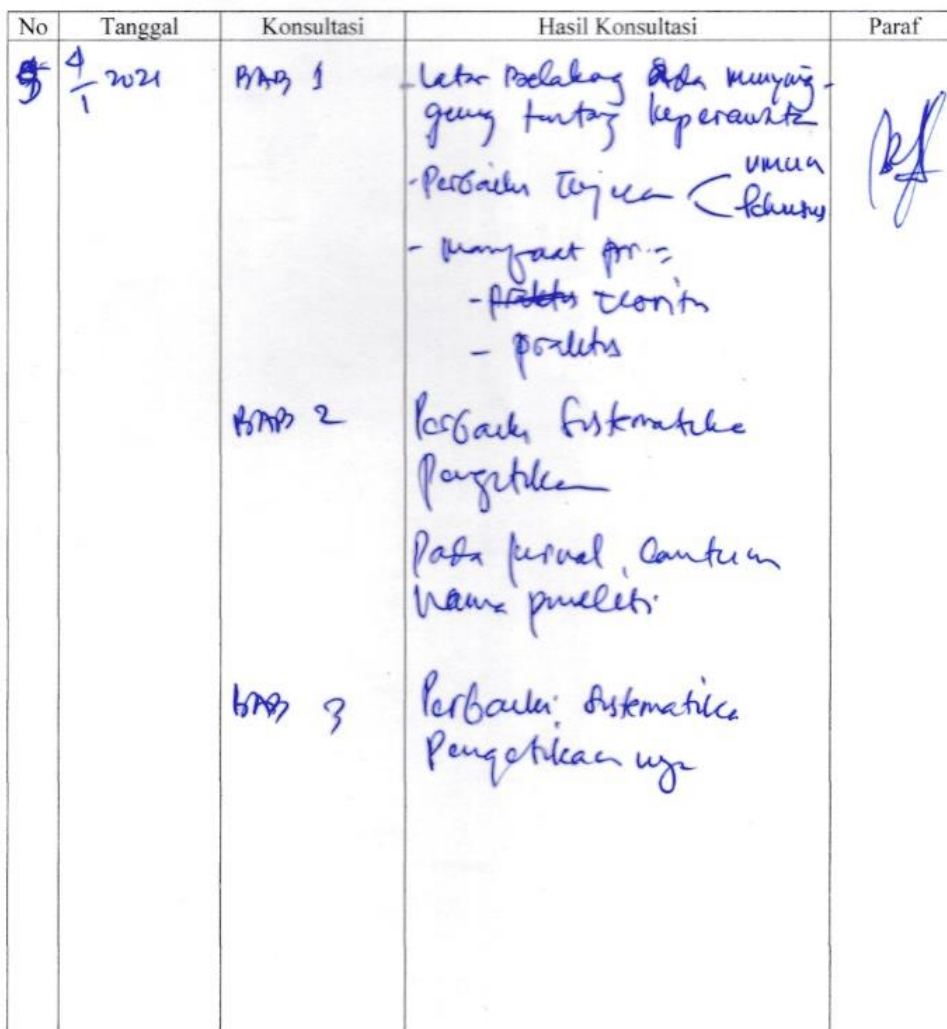 No Tanggal Konsultasi Hasil Konsultasi Paraf
4/1 2021 BAB 1 - Latar Belakang Ada menying-
gung tentang keperawatan
- Perbaiki Tujuan < umum
khusus
- manfaat
- praktis teoritis
- praktis
BAB 2 Perbaiki Sistematika
Pengetikan
Pada jurnal, cantum
nama peneliti
BAB 3 Perbaiki Sistematika
Pengetikannya